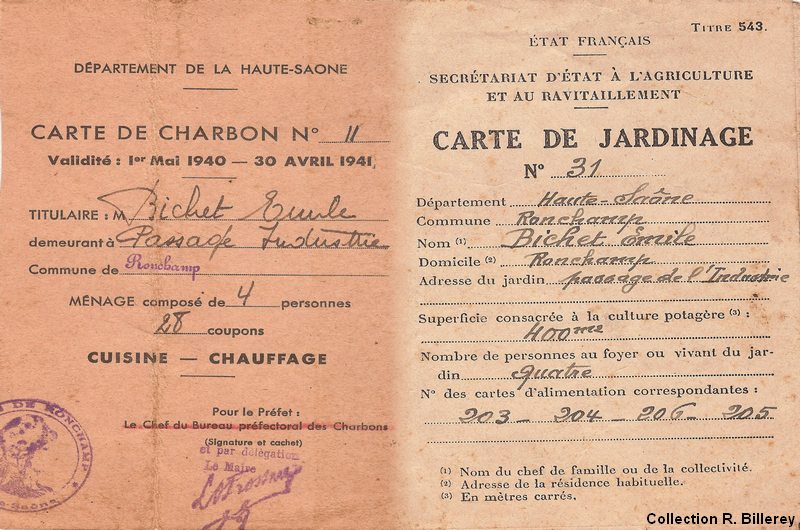 DÉPARTEMENT DE LA HAUTE-SAONE
CARTE DE CHARBON N° 11
Validité : 1er Mai 1940 — 30 AVRIL 1941
TITULAIRE : M Bichet Emile
demeurant à Passage Industrie
Commune de Ronchamp
MÉNAGE composé de 4 personnes
28 coupons
CUISINE — CHAUFFAGE
Pour le Préfet :
Le Chef du Bureau préfectoral des Charbons
(Signature et cachet)
et par délégation
Le Maire
DE RONCHAMP
TITRE 543.
ÉTAT FRANÇAIS
SECRÉTARIAT D'ÉTAT À L'AGRICULTURE
ET AU RAVITAILLEMENT
CARTE DE JARDINAGE
N° 31
Département Haute-Saône
Commune Ronchamp
Nom (1) Bichet Émile
Domicile (2) Ronchamp
Adresse du jardin passage de l'Industrie
Superficie consacrée à la culture potagère (3) :
400 me
Nombre de personnes au foyer ou vivant du jar-
din quatre
N° des cartes d'alimentation correspondantes :
203 - 204 - 206 - 205
(1) Nom du chef de famille ou de la collectivité.
(2) Adresse de la résidence habituelle.
(3) En mètres carrés.
Collection R. Billerey